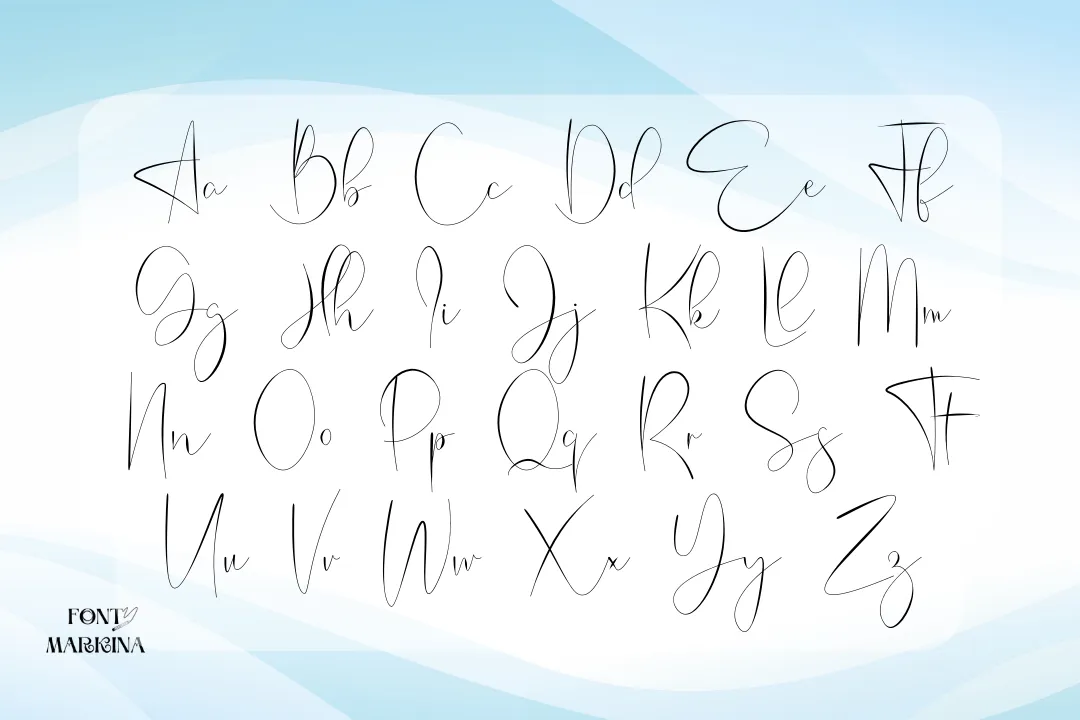 Aa Bb Cc Dd Ee Ff
Gg Hh Ii Jj Kk Ll Mm
Nn Oo Pp Qq Rr Ss Tt
Uu Vv Ww Xx Yy Zz
FONTY
MARKINA